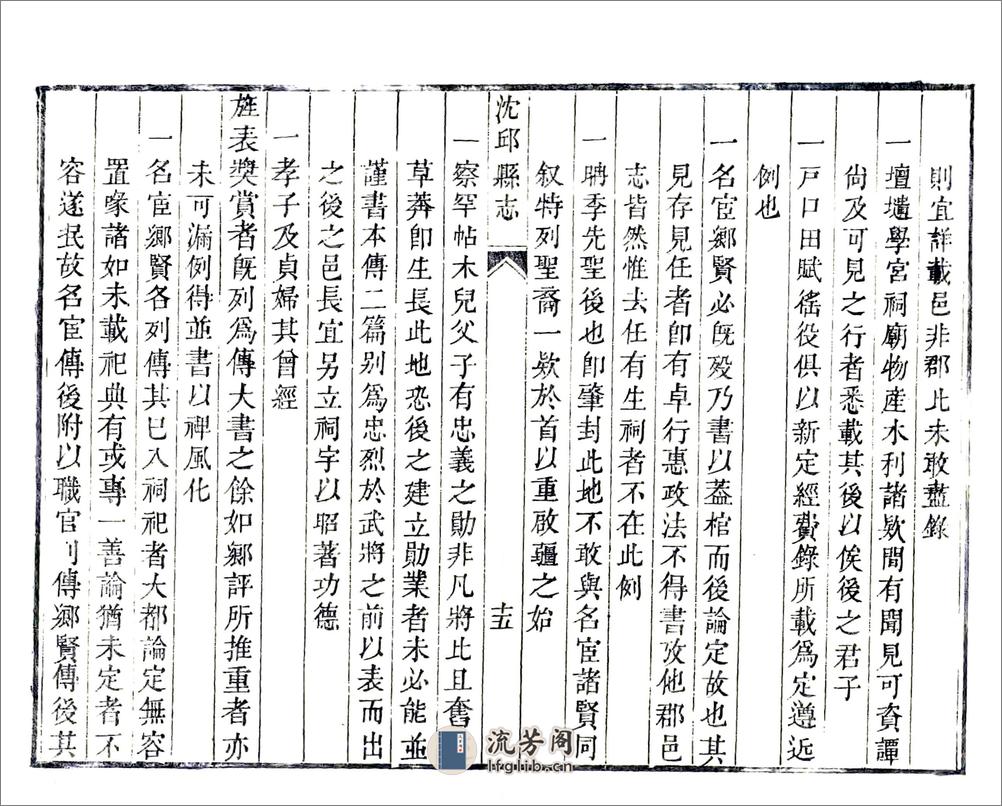 則宜詳載邑非郡比未敢盡錄
一壇壝學宮祠廟物産水利諸欵間有聞見可資譚
尙及可見之行者悉載其後以俟後之君子
一戸口田賦徭役俱以新定經費錄所載爲定遵近
例也
一名宦鄉賢必旣殁乃書以葢棺而後論定故也其
見存見任者卽有卓行惠政法不得書攷他郡邑
志皆然惟去任有生祠者不在此例
一聃季先聖後也卽肇封此地不敢與名宦諸賢同
叙特列聖裔一欵於首以重啟疆之始
沈邱縣志
十五
一察罕帖木兒父子有忠義之勛非凡將比且奮
草莽卽生長此地恐後之建立勛業者未必能並
謹書本傳二篇别爲忠烈於武將之前以表而出
之後之邑長宜另立祠字以昭著功德
一孝子及貞婦其曾經
旌表奬賞者旣列爲傳大書之餘如鄉評所推重者亦
未可漏例得並書以禆風化
一名宦鄉賢各列傳其已入祠祀者大都論定無容
置喙諸如未載祀典有或專一善論猶未定者不
容遂抿故名宦傳後附以職官列傳鄉賢傳後其
流芳阁
lfglib.cn